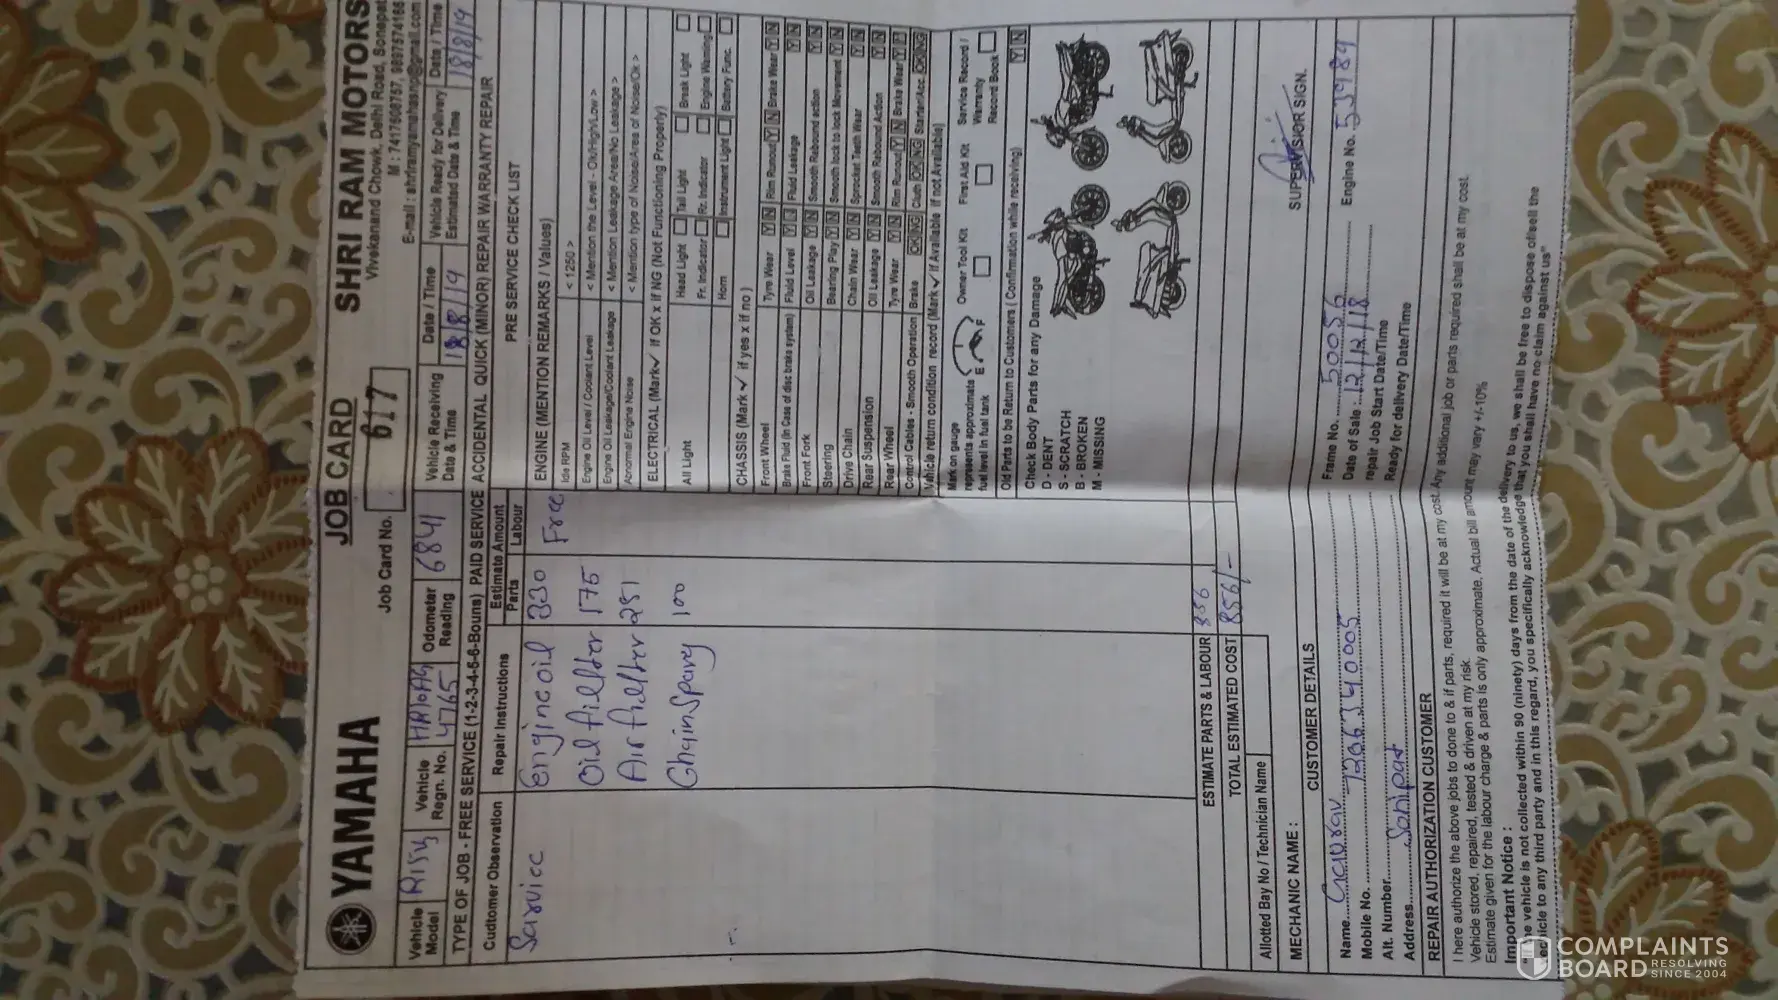 YAMAHA
JOB CARD
SHRI RAM MOTORS
Vivekanand Chowk, Delhi Road, Sonepat
M : 7417608757, 9897574186
Job Card No. 617
E-mail : shriramyamahasnp@gmail.com
Vehicle Model R15v3
Vehicle Regn. No. HR10AG 4765
Odometer Reading 6841
Vehicle Receiving Date & Time
Date / Time 18/8/19
Vehicle Ready for Delivery Estimated Date & Time
Date / Time 18/8/19
TYPE OF JOB - FREE SERVICE (1-2-3-4-5-6-Bouns) PAID SERVICE ACCIDENTAL QUICK (MINOR) REPAIR WARRANTY REPAIR
Cudtomer Observation
Repair Instructions
Estimate Amount
Parts
Labour
PRE SERVICE CHECK LIST
Sarvice
Engine oil 330 Free
Oil fillter 175
Air fillter 251
Chain Spary 100
ENGINE (MENTION REMARKS / Values)
Idle RPM < 1250 >
Engine Oil Level / Coolant Level < Mention the Level - Ok/High/Low >
Engine Oil Leakage/Coolant Leakage < Mention Leakage Area/No Leakage >
Abnormal Engine Noise < Mention type of Noise/Area of Noise/Ok >
ELECTRICAL (Mark✓ if OK x if NG (Not Functioning Properly)
All Light
Head Light Tail Light Break Light
Fr. Indicator Rr. Indicator Engine Warning
Horn Instrument Light Battery Func.
CHASSIS (Mark ✓ if yes x if no )
Front Wheel Tyre Wear Y N Rim Runout Y N Brake Wear Y N
Brake Fluid (In Case of disc brake system) Fluid Level Fluid Leakage Y N
Front Fork Oil Leakage Y N Smooth Rebound action Y N
Steering Bearing Play Y N Smooth lock to lock Movement Y N
Drive Chain Chain Wear Y N Sprocket Teeth Wear Y N
Rear Suspension Oil Leakage Y N Smooth Rabound Action Y N
Rear Wheel Tyre Wear Y N Rim Runout Y N Brake Wear
Control Cables - Smooth Operation Brake OK NG Cluth OK NG Starter/Acc. OK NG
Vehicle return condition record (Mark ✓ if Available if not Available)
Mark on gauge represents approximate fuel level in fuel tank
E F
Owner Tool Kit
First Aid Kit
Service Record / Warranty Record Book
Old Parts to be Return to Customers ( Confirmation while receiving) Y N
Check Body Parts for any Damage
D - DENT
S - SCRATCH
B - BROKEN
M - MISSING
ESTIMATE PARTS & LABOUR 856
TOTAL ESTIMATED COST 856/-
Allotted Bay No / Technician Name
MECHANIC NAME :
SUPERVISOR SIGN.
CUSTOMER DETAILS
Name Gaurav
Mobile No. 7206340005
Alt. Number
Address Sonipat
Frame No. 50056
Engine No. 539189
Date of Sale : 12/12/18
repair Job Start Date/Time
Ready for delivery Date/Time
REPAIR AUTHORIZATION CUSTOMER
I here authorize the above jobs to done to & if parts, required it will be at my cost. Any additional job or parts required shall be at my cost.
Vehicle stored, repaired, tested & driven at my risk.
Estimate given for the labour charge & parts is only approximate. Actual bill amount may vary +/-10%
Important Notice :
the vehicle is not collected within 90 (ninety) days from the date of the delivery to us, we shall be free to dispose of/sell the
vehicle to any third party and in this regard, you specifically acknowledge that you shall have no claim against us"
COMPLAINTS BOARD
RESOLVING SINCE 2004